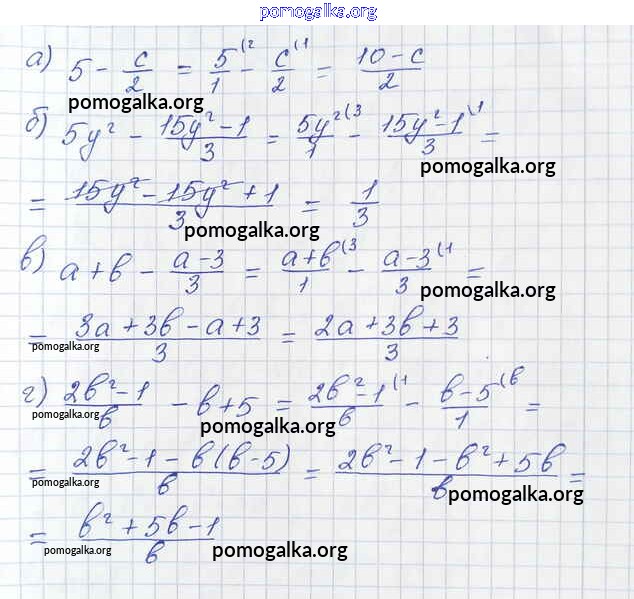 pomogalka.org
а) 5 - c/2 = 5/1 (2 - c/2 (1 = (10-c)/2
pomogalka.org
б) 5y² - (15y²-1)/3 = 5y²/1 (3 - (15y²-1)/3 (1 =
pomogalka.org
= (15y² - 15y² + 1)/3 = 1/3
pomogalka.org
в) a+b - (a-3)/3 = (a+b)/1 (3 - (a-3)/3 (1 =
pomogalka.org
= (3a+3b-a+3)/3 = (2a+3b+3)/3
pomogalka.org
г) (2b²-1)/b - b+5 = (2b²-1)/b (1 - (b-5)/1 (b =
pomogalka.org pomogalka.org
= (2b²-1-b(b-5))/b = (2b²-1-b²+5b)/b =
pomogalka.org pomogalka.org
= (b²+5b-1)/b
pomogalka.org pomogalka.org